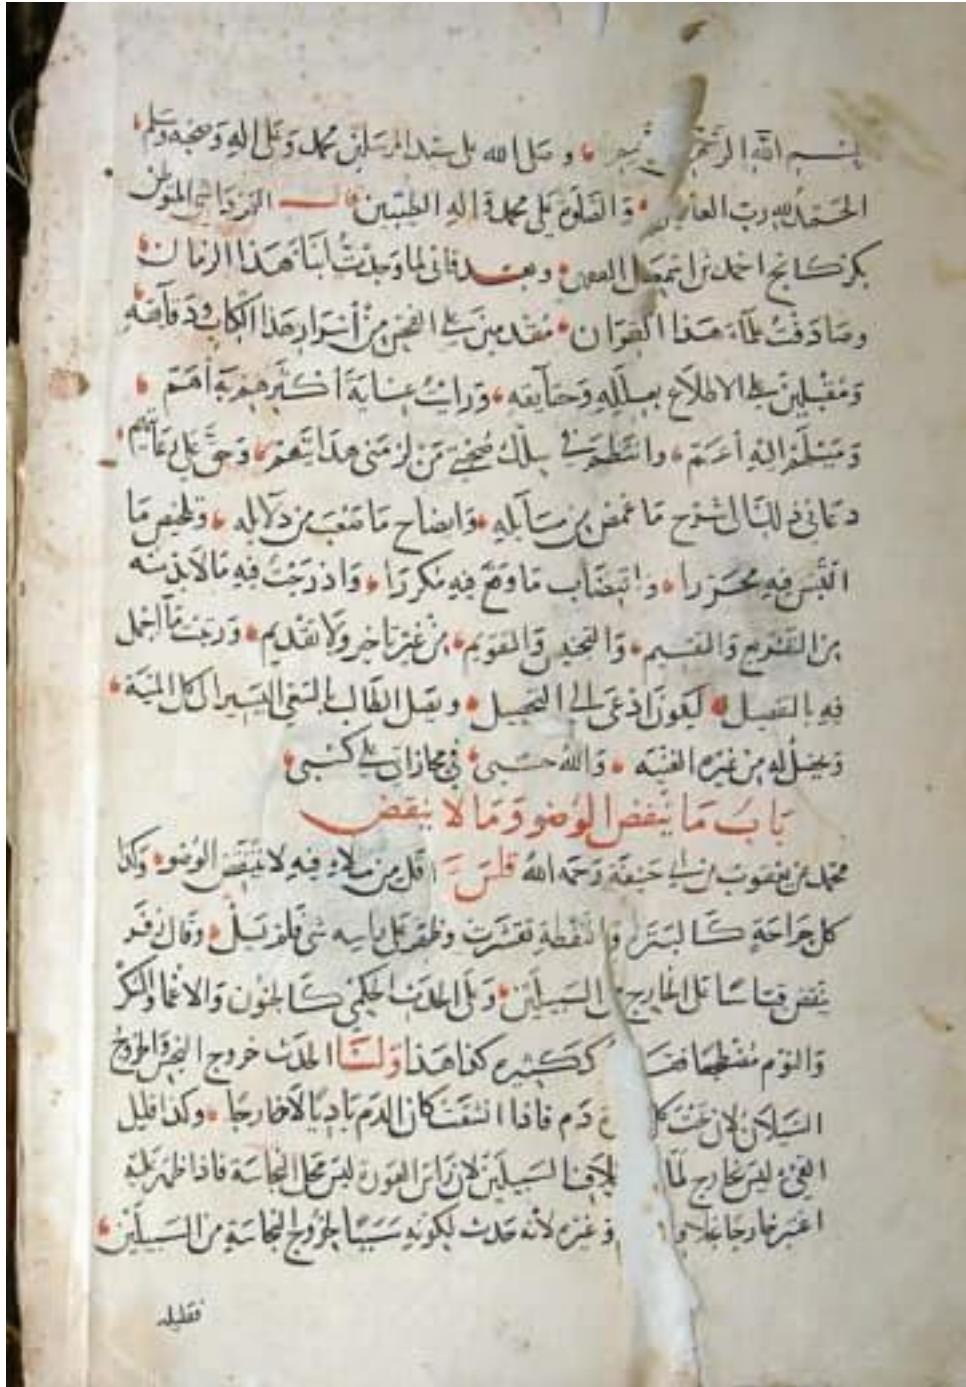 بسم الله الرحمن وصلى الله على سيد المرسلين محمد وعلى اله وصحبه وسلم
الحمد لله رب والصلوة على محمد واله الطيبين
احمد بن وبعد فاني لما وجدت ابناء هذا الزمان
وصادفت علماء هذا من اسرار هذا الكتاب ودقايقه
ومقبلين على الاطلاع بعلله وحقايقه ورايت عناية اكثرهم به اهم
وميلهم اليه اعم وانتظم في سلك صحبتي من لزمني وحق علي
دعاني ذلك الى شرح ما غمض من مسايله وايضاح ما صعب من دلايله وتلخيص ما
التبس فيه محررا واقتضاب ما وقع فيه مكررا وادرجت فيه ما لا بد منه
من التفريع والتقسيم والتقويم من غير تاخير ولا تقديم ما اجمل
فيه بالتفصيل ليكون ادعى الى التحصيل الطالب بالسعي اليسير الى كمال المنية
ويحصل له من غيره الغنية والله حسبي في مجازاتي على كسبي
باب ما ينقض الوضو وما لا ينقض
محمد عن يعقوب عن ابي حنيفة رحمه الله قلس اقل من ملاء فيه لا ينقض الوضو وكذا
كل جراحة تقشرت وظهر على راسه شي فلم يسل وقال زفر
ينقض قياسا على الخارج السبيلين وعلى الحدث الحكمي كالجنون والاغما والسكر
والنوم مضطجعا كثيره كذا هذا ولنا الحدث خروج النجس والخروج
السيلان لان تحت دم فاذا انشقت كان الدم باديا لا خارجا وكذا قليل
القيء ليس بخارج السبيلين لان راس العورة ليس محل النجاسة فاذا ظهر عليه
اعتبر خارجا وغيره لانه حدث لكونه سببا لخروج النجاسة من السبيلين
فقليله